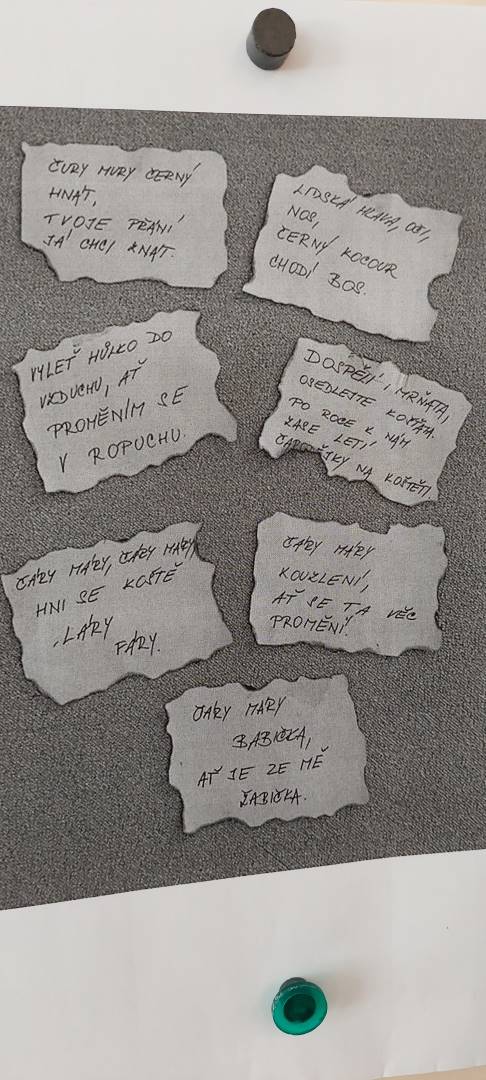 ČURY MURY ČERNÝ
HNÁT,
TVOJE PŘÁNÍ
JÁ CHCI ZNÁT.
LIDSKÁ HLAVA, OČI,
NOS,
ČERNÝ KOCOUR
CHODÍ BOS.
VYLEŤ HŮLKO DO
VZDUCHU, AŤ
PROMĚNÍM SE
V ROPUCHU.
DOSPĚLÍ I MRŇATA,
OSEDLEJTE KOŤATA.
PO ROCE K NÁM
ZASE LETÍ
ČARODĚJKY NA KOŠTĚTI
ČÁRY MÁRY, ČÁRY MÁRY,
HNI SE KOŠTĚ
LÁRY
FÁRY.
ČÁRY MÁRY
KOUZLENÍ,
AŤ SE TA VĚC
PROMĚNÍ.
ČÁRY MÁRY
BABIČKA,
AŤ JE ZE MĚ
ŽABIČKA.